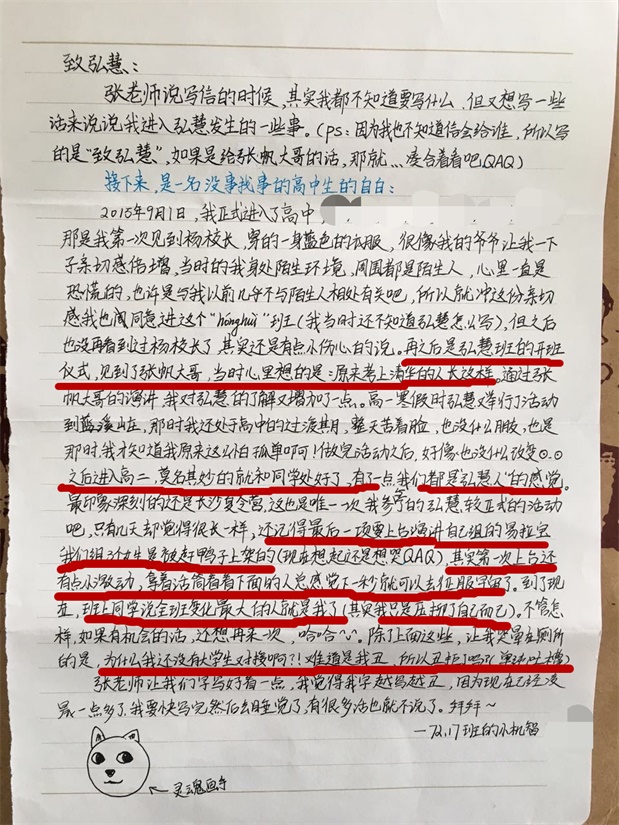 致弘慧：
张老师说写信的时候，其实我都不知道要写什么，但又想写一些
话来说说我进入弘慧发生的一些事。（ps：因为我也不知道信会给谁，所以写
的是“致弘慧”，如果是给张帆大哥的话，那就…凑合着看吧QAQ）
接下来，是一名没事找事的高中生的自白：
2015年9月1日，我正式进入了高中
那是我第一次见到杨校长，穿的一身蓝色的衣服，很像我的爷爷让我一下
子亲切感倍增，当时的我身处陌生环境，周围都是陌生人，心里一直是
恐慌的，也许是与我以前几乎不与陌生人相处有关吧，所以就冲这份亲切
感我也同意进这个“hónghuì”班（我当时还不知道弘慧怎么写），但之后
也没再看到过杨校长了，其实还是有点小伤心的说。再之后是弘慧班的开班
仪式，见到了张帆大哥，当时心里想的是：原来考上清华的人长这样。通过张
帆大哥的演讲，我对弘慧的了解又增加了一点。高一寒假时弘慧举行了活动
到蓝溪山庄，那时我还处于高中的过渡期，整天苦着脸，也没什么朋友，也是
那时，我才知道我原来这么怕孤单啊！做完活动之后，好像也没什么改变⊙.⊙
之后进入高二，莫名其妙的就和同学处好了，有了一点“我们都是弘慧人”的感觉。
最印象深刻的还是长沙夏令营，这也是唯一一次我参与的弘慧较正式的活动
吧，只有几天却觉得很长一样，还记得最后一项要上台演讲自己组的易拉宝
我们组3个女生是被赶鸭子上架的（现在想起还是想哭QAQ），其实第一次上台还
有点小激动，拿着话筒看着下面的人总感觉下一秒就可以去征服宇宙了。到了现
在，班上同学说全班变化最大的人就是我了（其实我只是压抑了自己而已）。不管怎
样，如果有机会的话，还想再来一次，哈哈~。除了上面这些，让我哭晕在厕所
的是，为什么我还没有大学生对接啊？！难道是我丑，所以丑拒了吗？（强烈吐槽）
张老师让我们字写好看一点，我觉得我字越写越丑，因为现在已经凌
晨一点多了，我要快写完然后去睡觉了，有很多话也就不说了。拜拜~
—72.17班的小机智
←灵魂画手